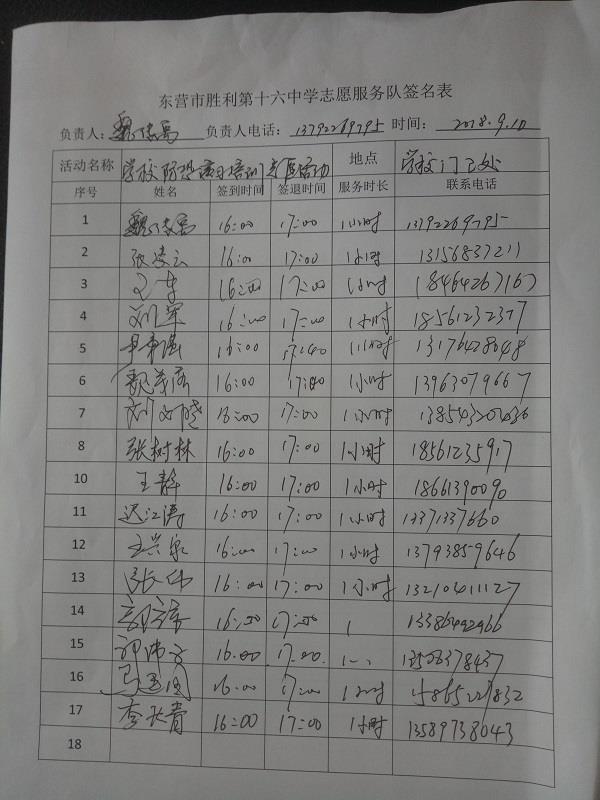 东营市胜利第十六中学志愿服务队签名表
负责人: 负责人电话: 13792269795 时间: 2018.9.10
活动名称 学校 培训 活动 地点 学校门口处
序号 姓名 签到时间 签退时间 服务时长 联系电话
1 16:00 17:00 1小时 13792269795
2 张凌云 16:00 17:00 1小时 13156837211
3 16:00 17:00 1小时 18464267167
4 刘军 16:00 17:00 1小时 18561232377
5 16:00 17:00 1小时 13176428648
6 16:00 17:00 1小时 13963079667
7 17:00 1小时
8 张树林 16:00 17:00 1小时 18561235917
10 王静 16:00 17:00 1小时 18661390090
11 迟江涛 16:00 17:00 1小时 13371337660
12 王兴泉 16:00 17:00 1小时 13793859646
13 张伟 16:00 17:00 1小时 13210411127
14 16:00 17:00 1 13386492966
15 16:00 17:00 13506378437
16 16:00 17:00 1小时
17 李长青 16:00 17:00 1小时 13589738043
18